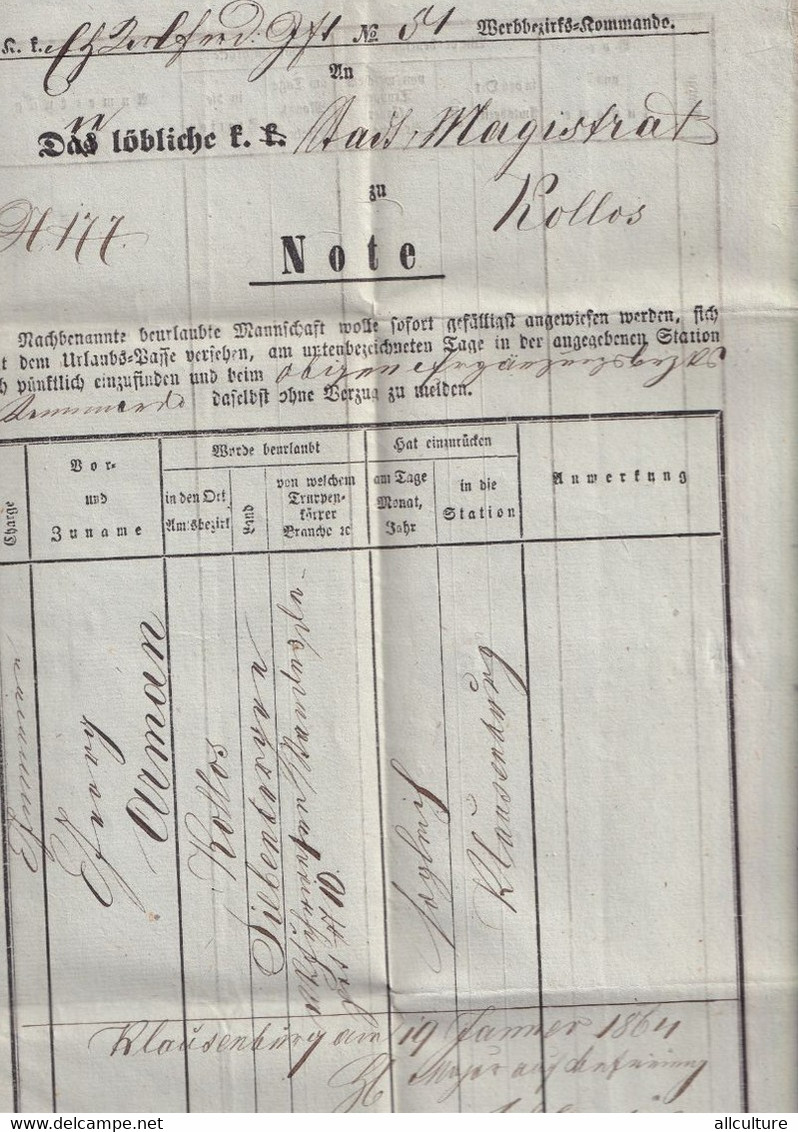 K. k. Ezh. Carl Ferd. Jft № 51 Werbbezirks-Kommando.
An
Das löbliche k. k. Stadt Magistrat
zu
Kollos
№ 177.
Note
Nachbenannte beurlaubte Mannschaft wolle sofort gefälligst angewiesen werden, sich
t dem Urlaubs-Passe versehen, am untenbezeichneten Tage in der angegebenen Station
h pünktlich einzufinden und beim obigen Ergänzungsbezks
Kommando daselbst ohne Verzug zu melden.
Charge
Vor- und Zuname
Wurde beurlaubt
in den Ort Amtsbezirk
Land
von welchem Truppenkörper Branche ꝛc
Hat einzurücken
am Tage Monat, Jahr
in die Station
Anmerkung
Arman
Kollos
Siebenbürgen
sogleich
Klausenburg
Klausenburg am 19 Janner 1864
Major
allculture